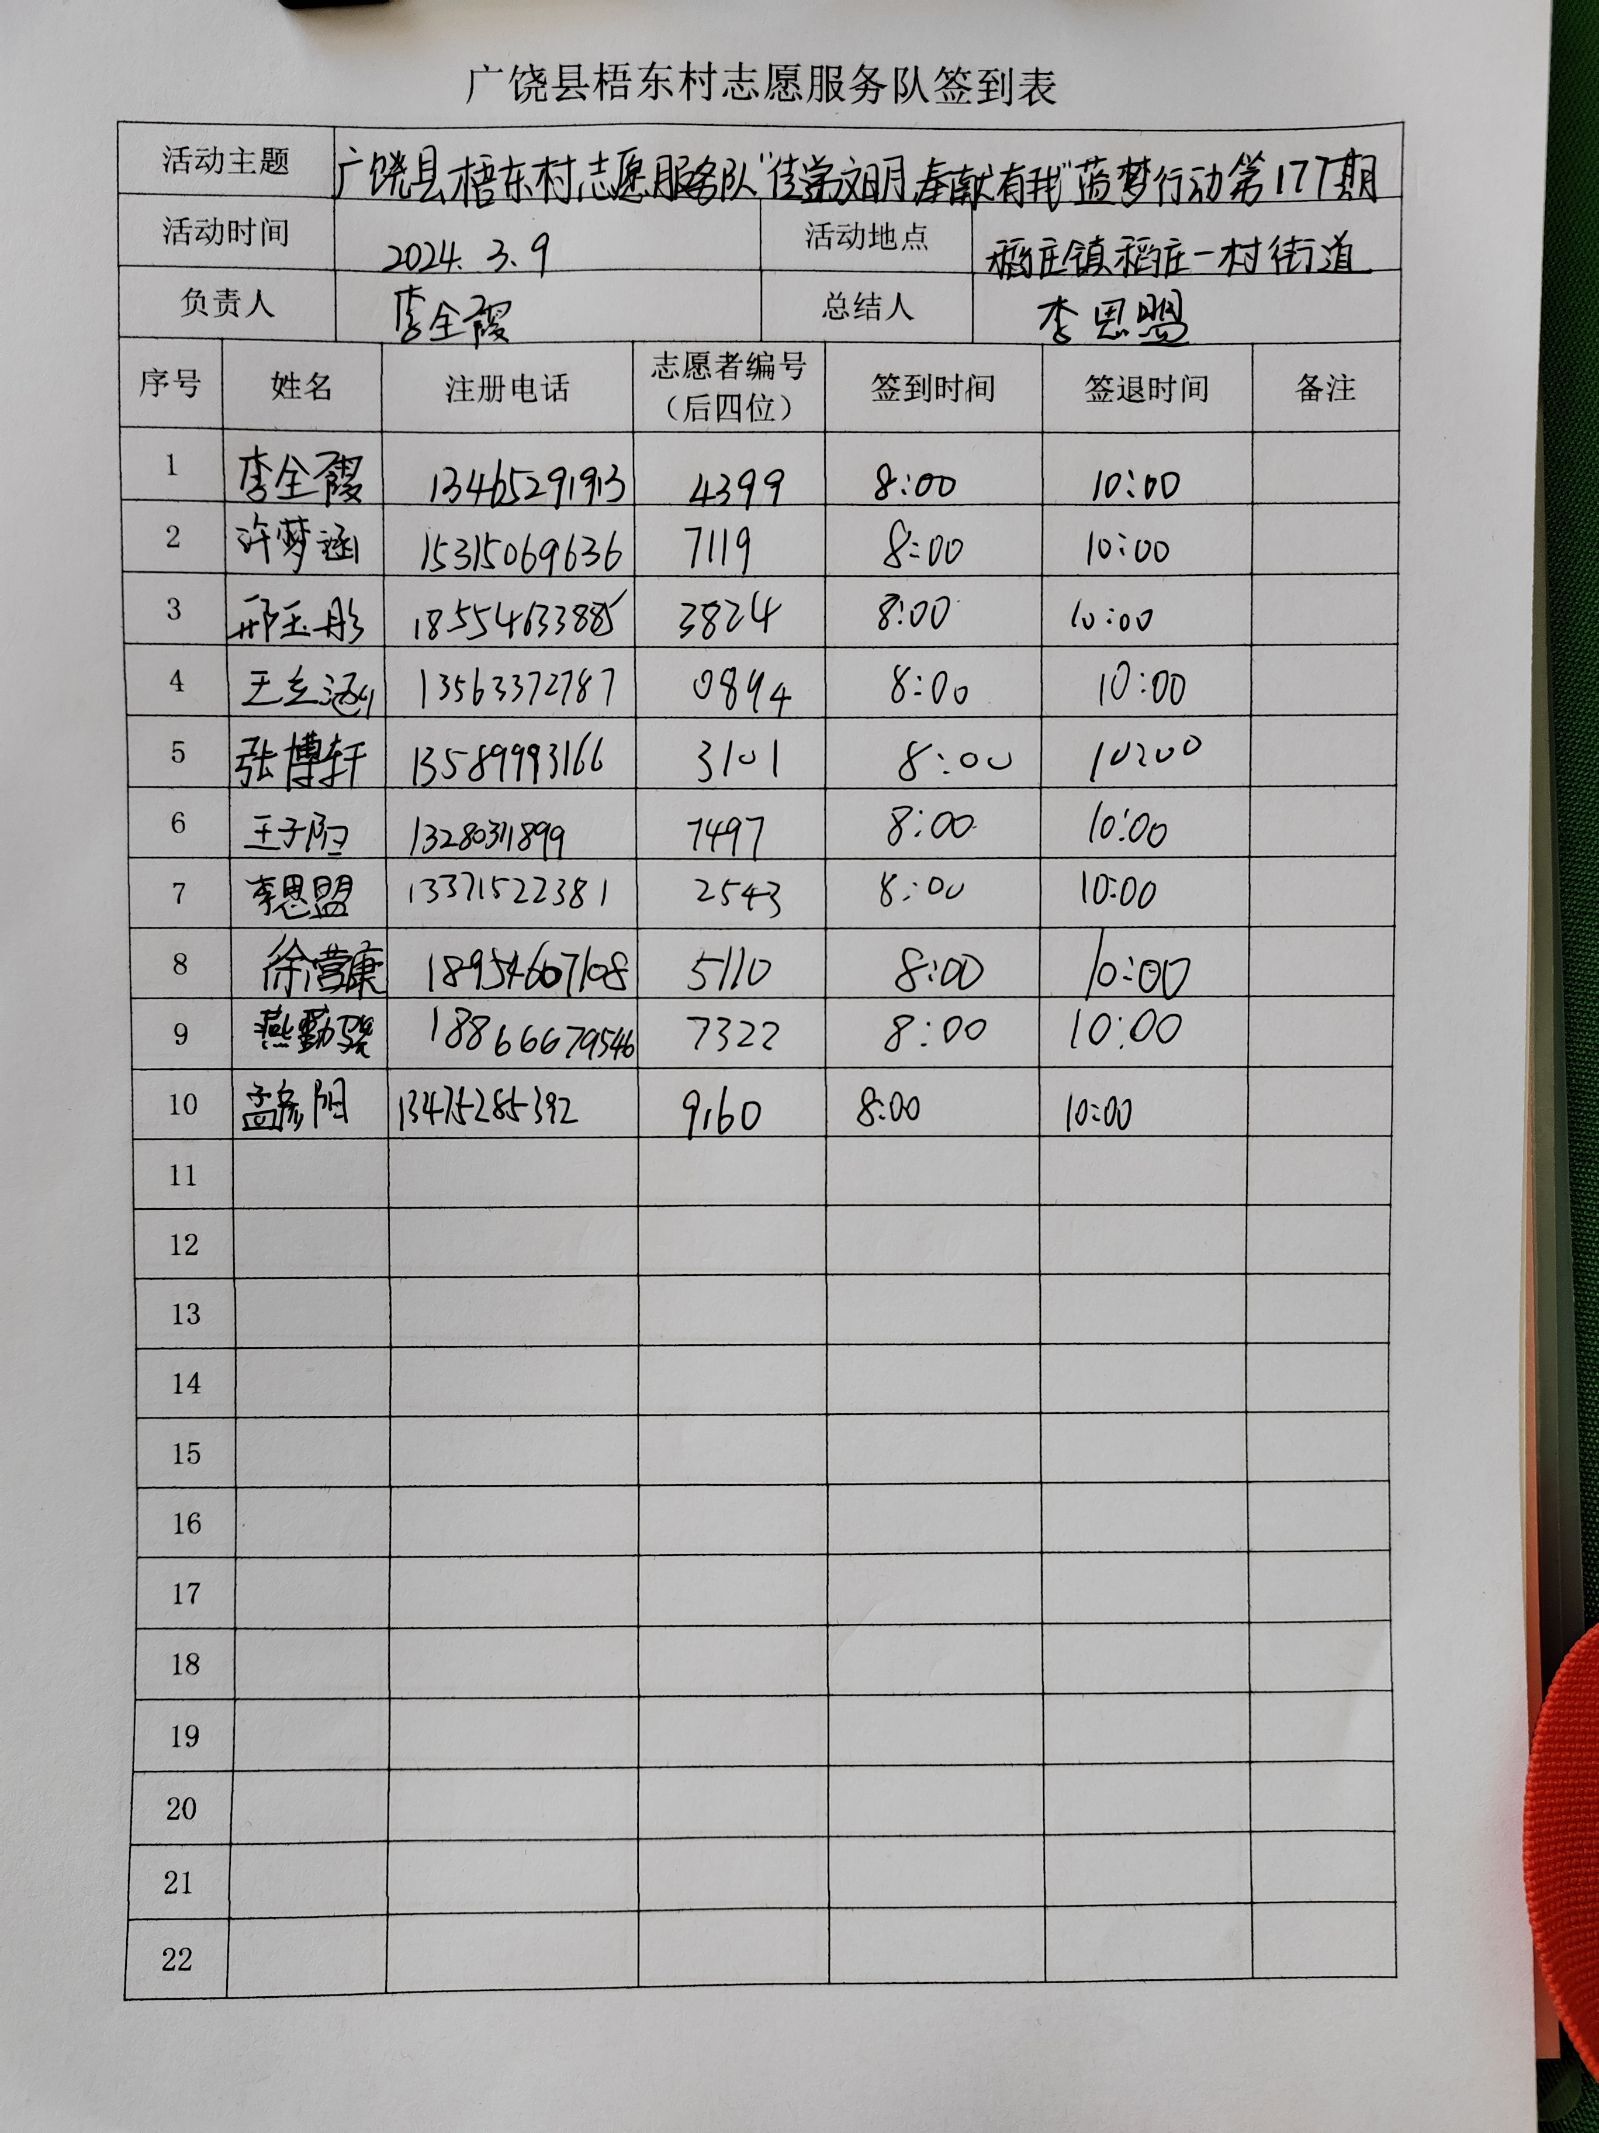 广饶县梧东村志愿服务队签到表
活动主题 广饶县梧东村志愿服务队“佳常文明 奉献有我”蓝梦行动第177期
活动时间 2024.3.9 活动地点 稻庄镇稻庄一村街道
负责人 李全霞 总结人 李思盟
序号 姓名 注册电话 志愿者编号（后四位） 签到时间 签退时间 备注
1 李全霞 13465291913 4399 8:00 10:00
2 许梦涵 15315069636 7119 8:00 10:00
3 邢玉彤 18554633885 3824 8:00 10:00
4 王立涵 13563372787 0894 8:00 10:00
5 张博轩 13589993166 3101 8:00 10:00
6 王子 13280311899 7497 8:00 10:00
7 李思盟 13371522381 2543 8:00 10:00
8 徐营康 18954607108 5110 8:00 10:00
9 燕勤骁 18866679546 7322 8:00 10:00
10 孟彦阳 13475285392 9160 8:00 10:00
11
12
13
14
15
16
17
18
19
20
21
22